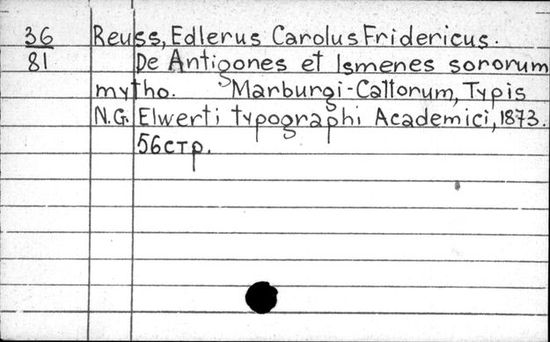 36 Reuss, Edlerus Carolus Fridericus.
81 De Antigones et Ismenes sororum
mytho. Marburgi-Cattorum, Typis
N.G. Elwerti typographi Academici, 1873.
56стр.